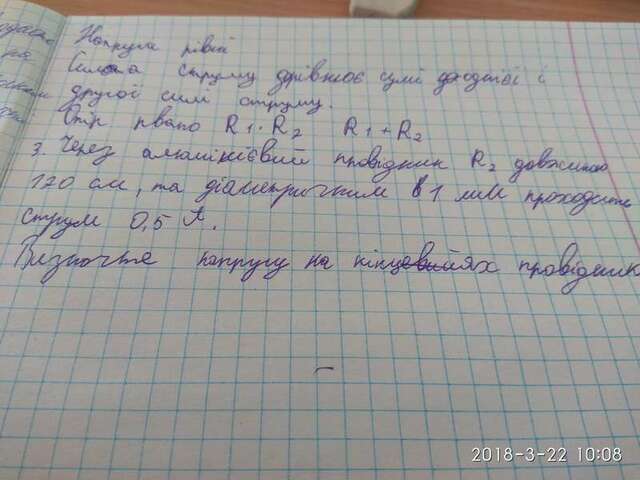 Напруга рівні
Сила струму дорівнює сумі і
другої силі струму.
Опір рвано R1 · R2 R1 + R2
3. Через алюмінієвий провідник R2 довжиною
120 см, та діаметричним в 1 мм проходить
струм 0,5 А.
Визночте напругу на кінцях провідник
2018-3-22 10:08